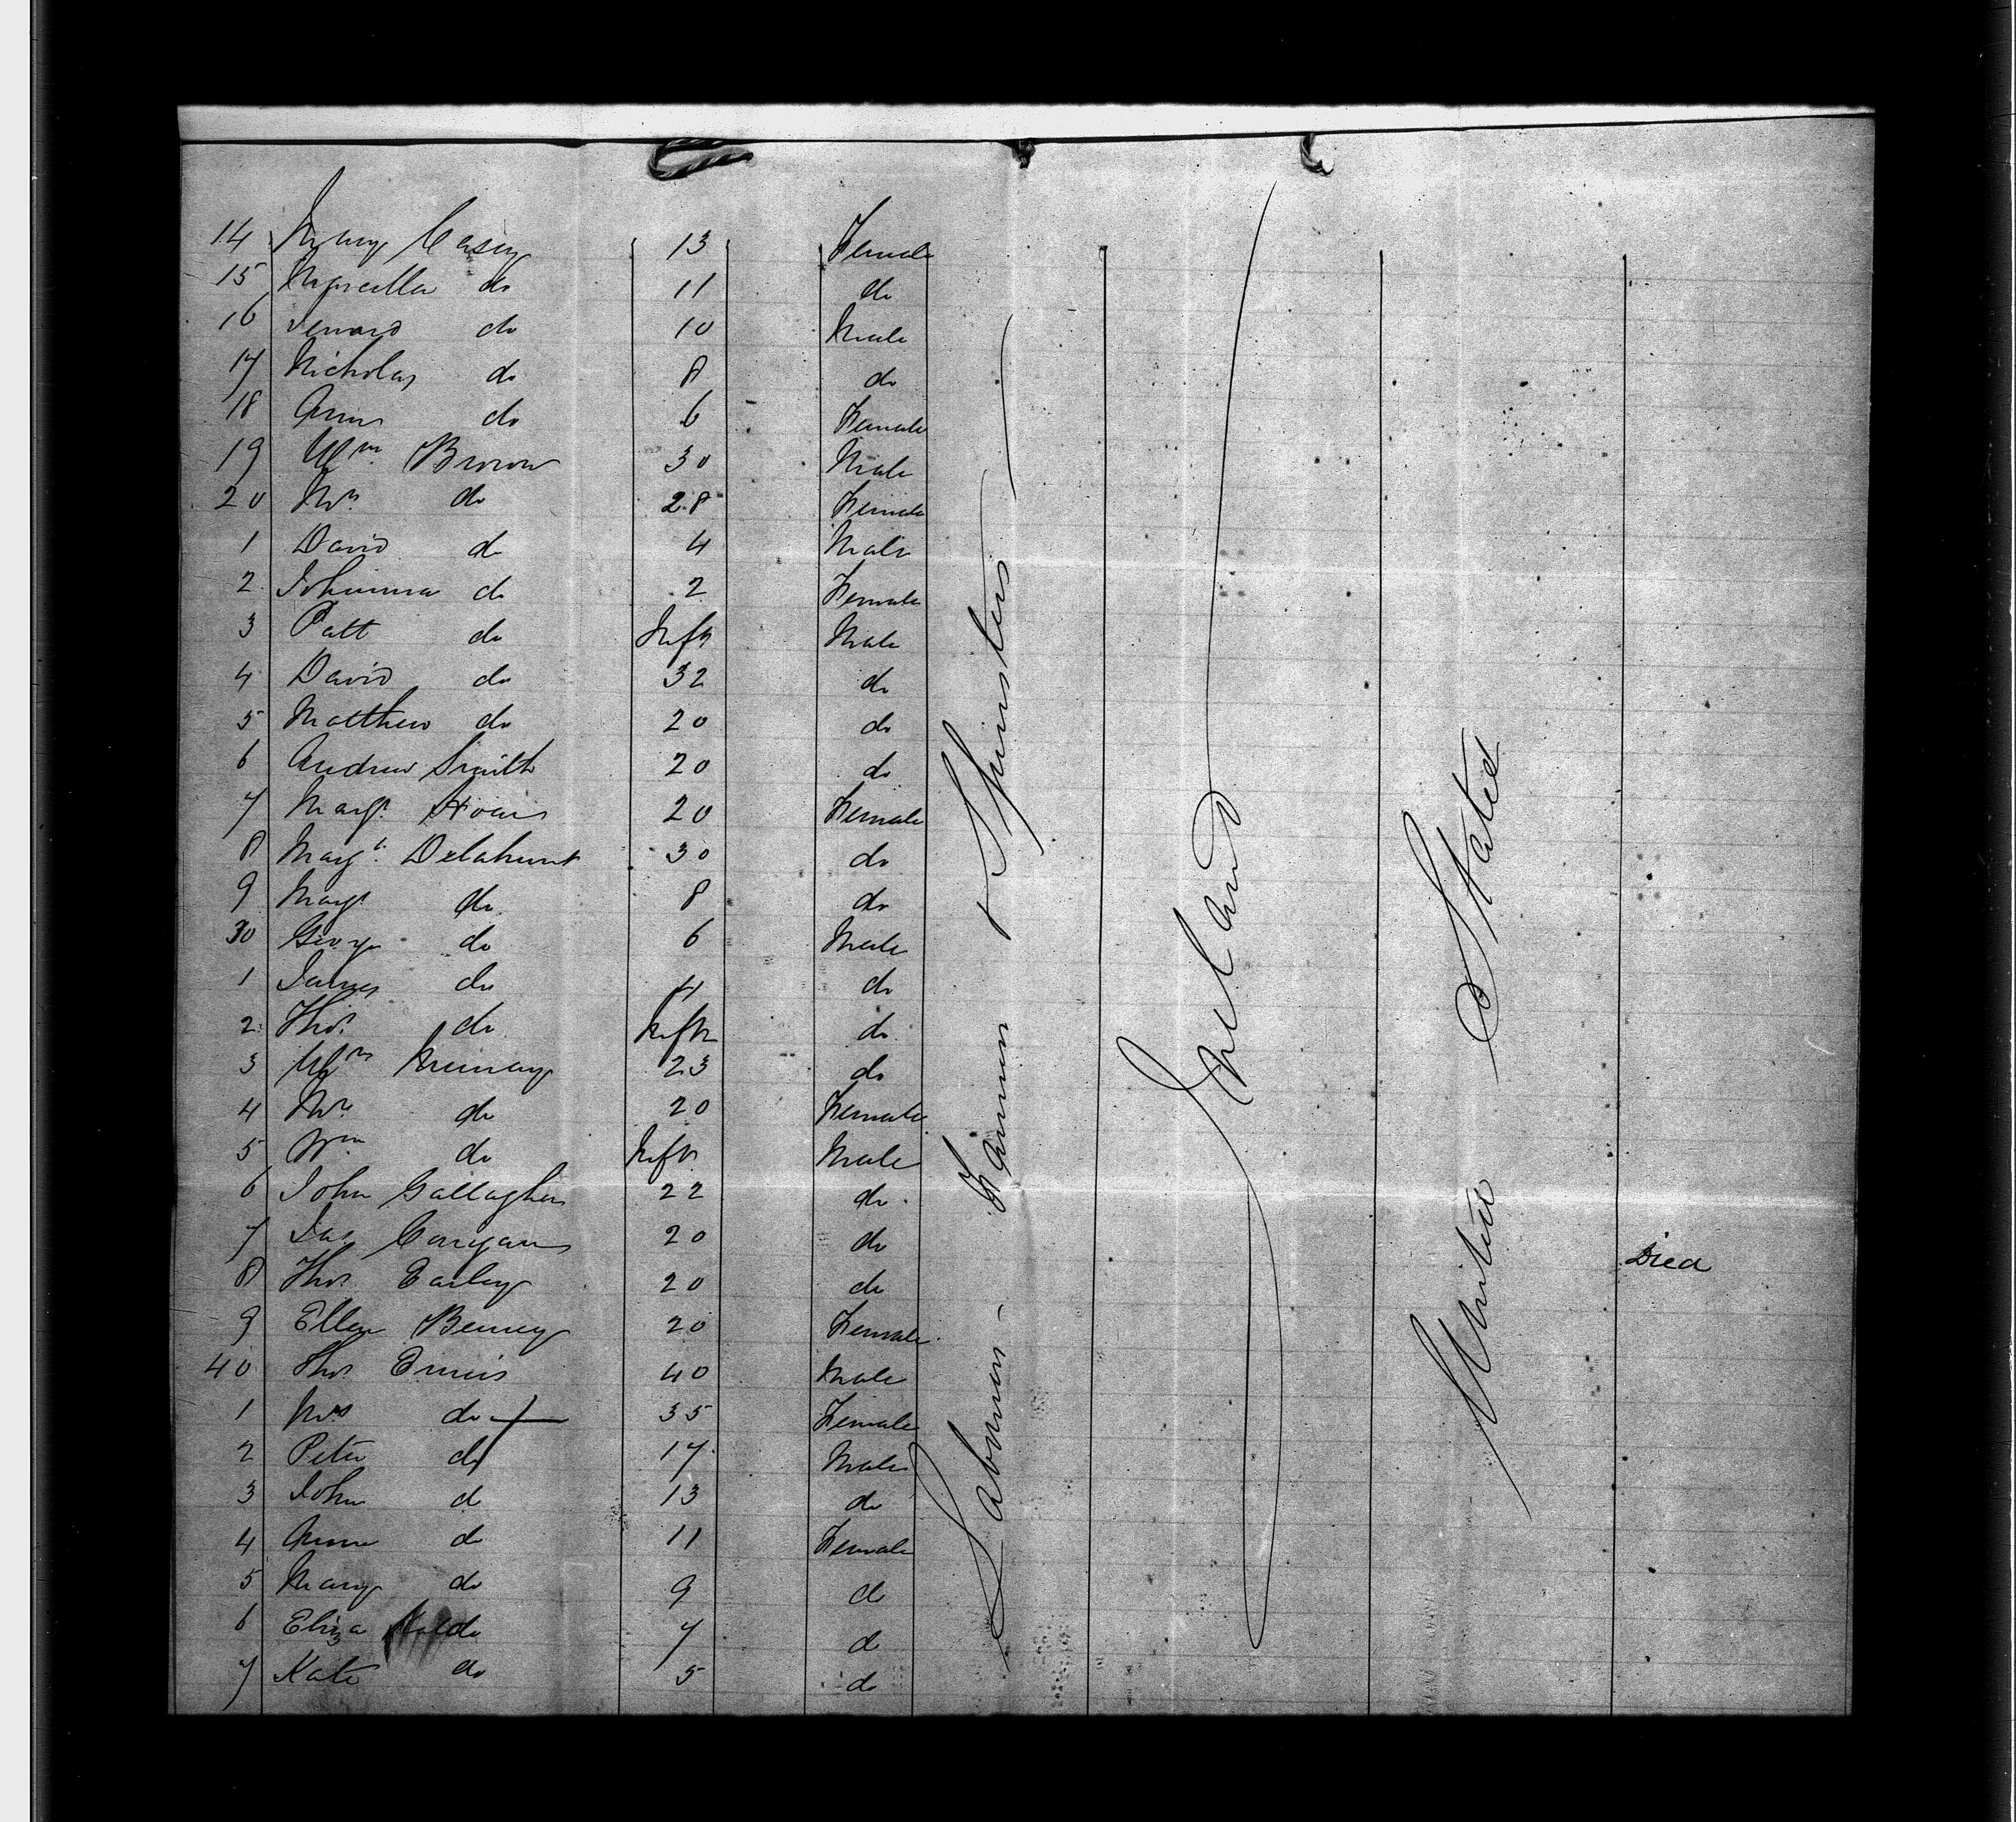 14 Mary Casey 13 Female
15 Marcella do 11 do
16 do 10 Male
17 Nicholas do 8 do
18 Anne do 6 Female
19 Wm Brown 30 Male
20 Mrs do 28 Female
1 David do 4 Male
2 Johanna do 2 Female
3 Patt do Inft Male
4 David do 32 do
5 Matthew do 20 do
6 Andrew Smith 20 do
7 Margt 20 Female
8 Margt Delahunt 30 do
9 Margt do 8 do
30 George do 6 Male
1 James do 4 do
2 Thos do Inft do
3 Wm 23 do
4 Mrs do 20 Female
5 Wm do Inft Male
6 John Gallagher 22 do
7 Jas Corrigan 20 do
8 Thos Earley 20 do Died
9 Ellen 20 Female
40 Thos Ennis 40 Male
1 Mrs do 35 Female
2 Peter do 17 Male
3 John d 13 do
4 Anne do 11 Female
5 Mary do 9 do
6 Eliza do 7 do
7 Kate do 5 do
Labourers - Farmers & Spinsters
Ireland
United States